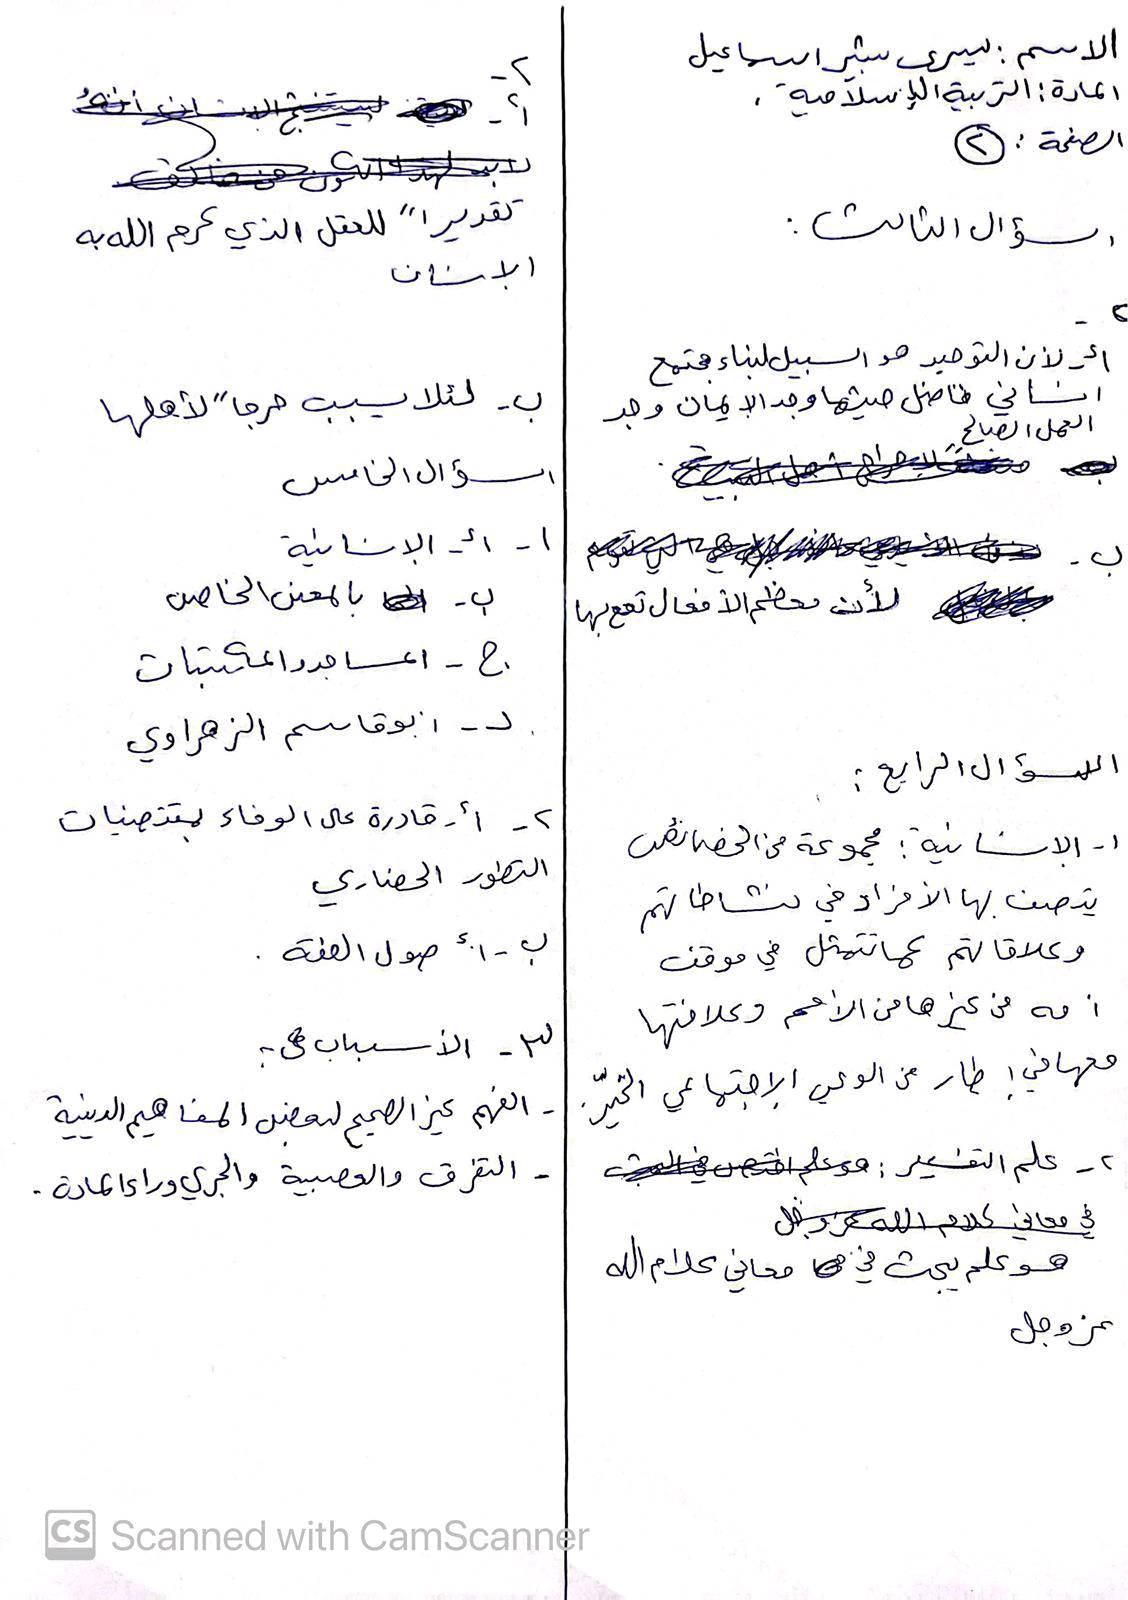 الاسم : يسرى بشير اسماعيل
المادة : التربية الإسلامية .
الصفحة : ٢
اسؤال الثالث :
٢ -
أ- لأن التوحيد هو السبيل لبناء مجتمع
انساني فاضل حيثما وجد الإيمان وجد
العمل الصالح
ب -
لأن معظم الأفعال تقع بها
السؤال الرابع :
١ - الإنسانية : مجموعة من الخصائص
يتصف بها الأفراد في نشاطاتهم
وعلاقاتهم كما تتمثل في موقف
أمه من غيرها من الأمم وعلاقتها
معها في إطار من الوعي الإجتماعي الخيّر .
٢ - علم التفسير : هو علم اختص في البحث
في معاني كلام الله عز وجل
هو علم يبحث في معاني كلام الله
عز وجل
٢ -
أ - يستنتج الإنسان أنهُ
لابد لهذا الكون من خالق
تقديرا" للعقل الذي كرم الله به
الإنسان
ب - لئلا يسبب حرجا" لأهلها
اسؤال الخامس
١ - أ - الإنسانية
ب - بالمعنى الخاص
ج - المساجد والمكتبات
د - أبو قاسم الزهراوي
٢ - أ - قادرة على الوفاء بمقتضيات
التطور الحضاري
ب - أصول الفقه .
٣ - الأسباب هي :
- الفهم غير الصحيح لبعض المفاهيم الدينية
- التفرق والعصبية والجري وراء المادة .
CS Scanned with CamScanner